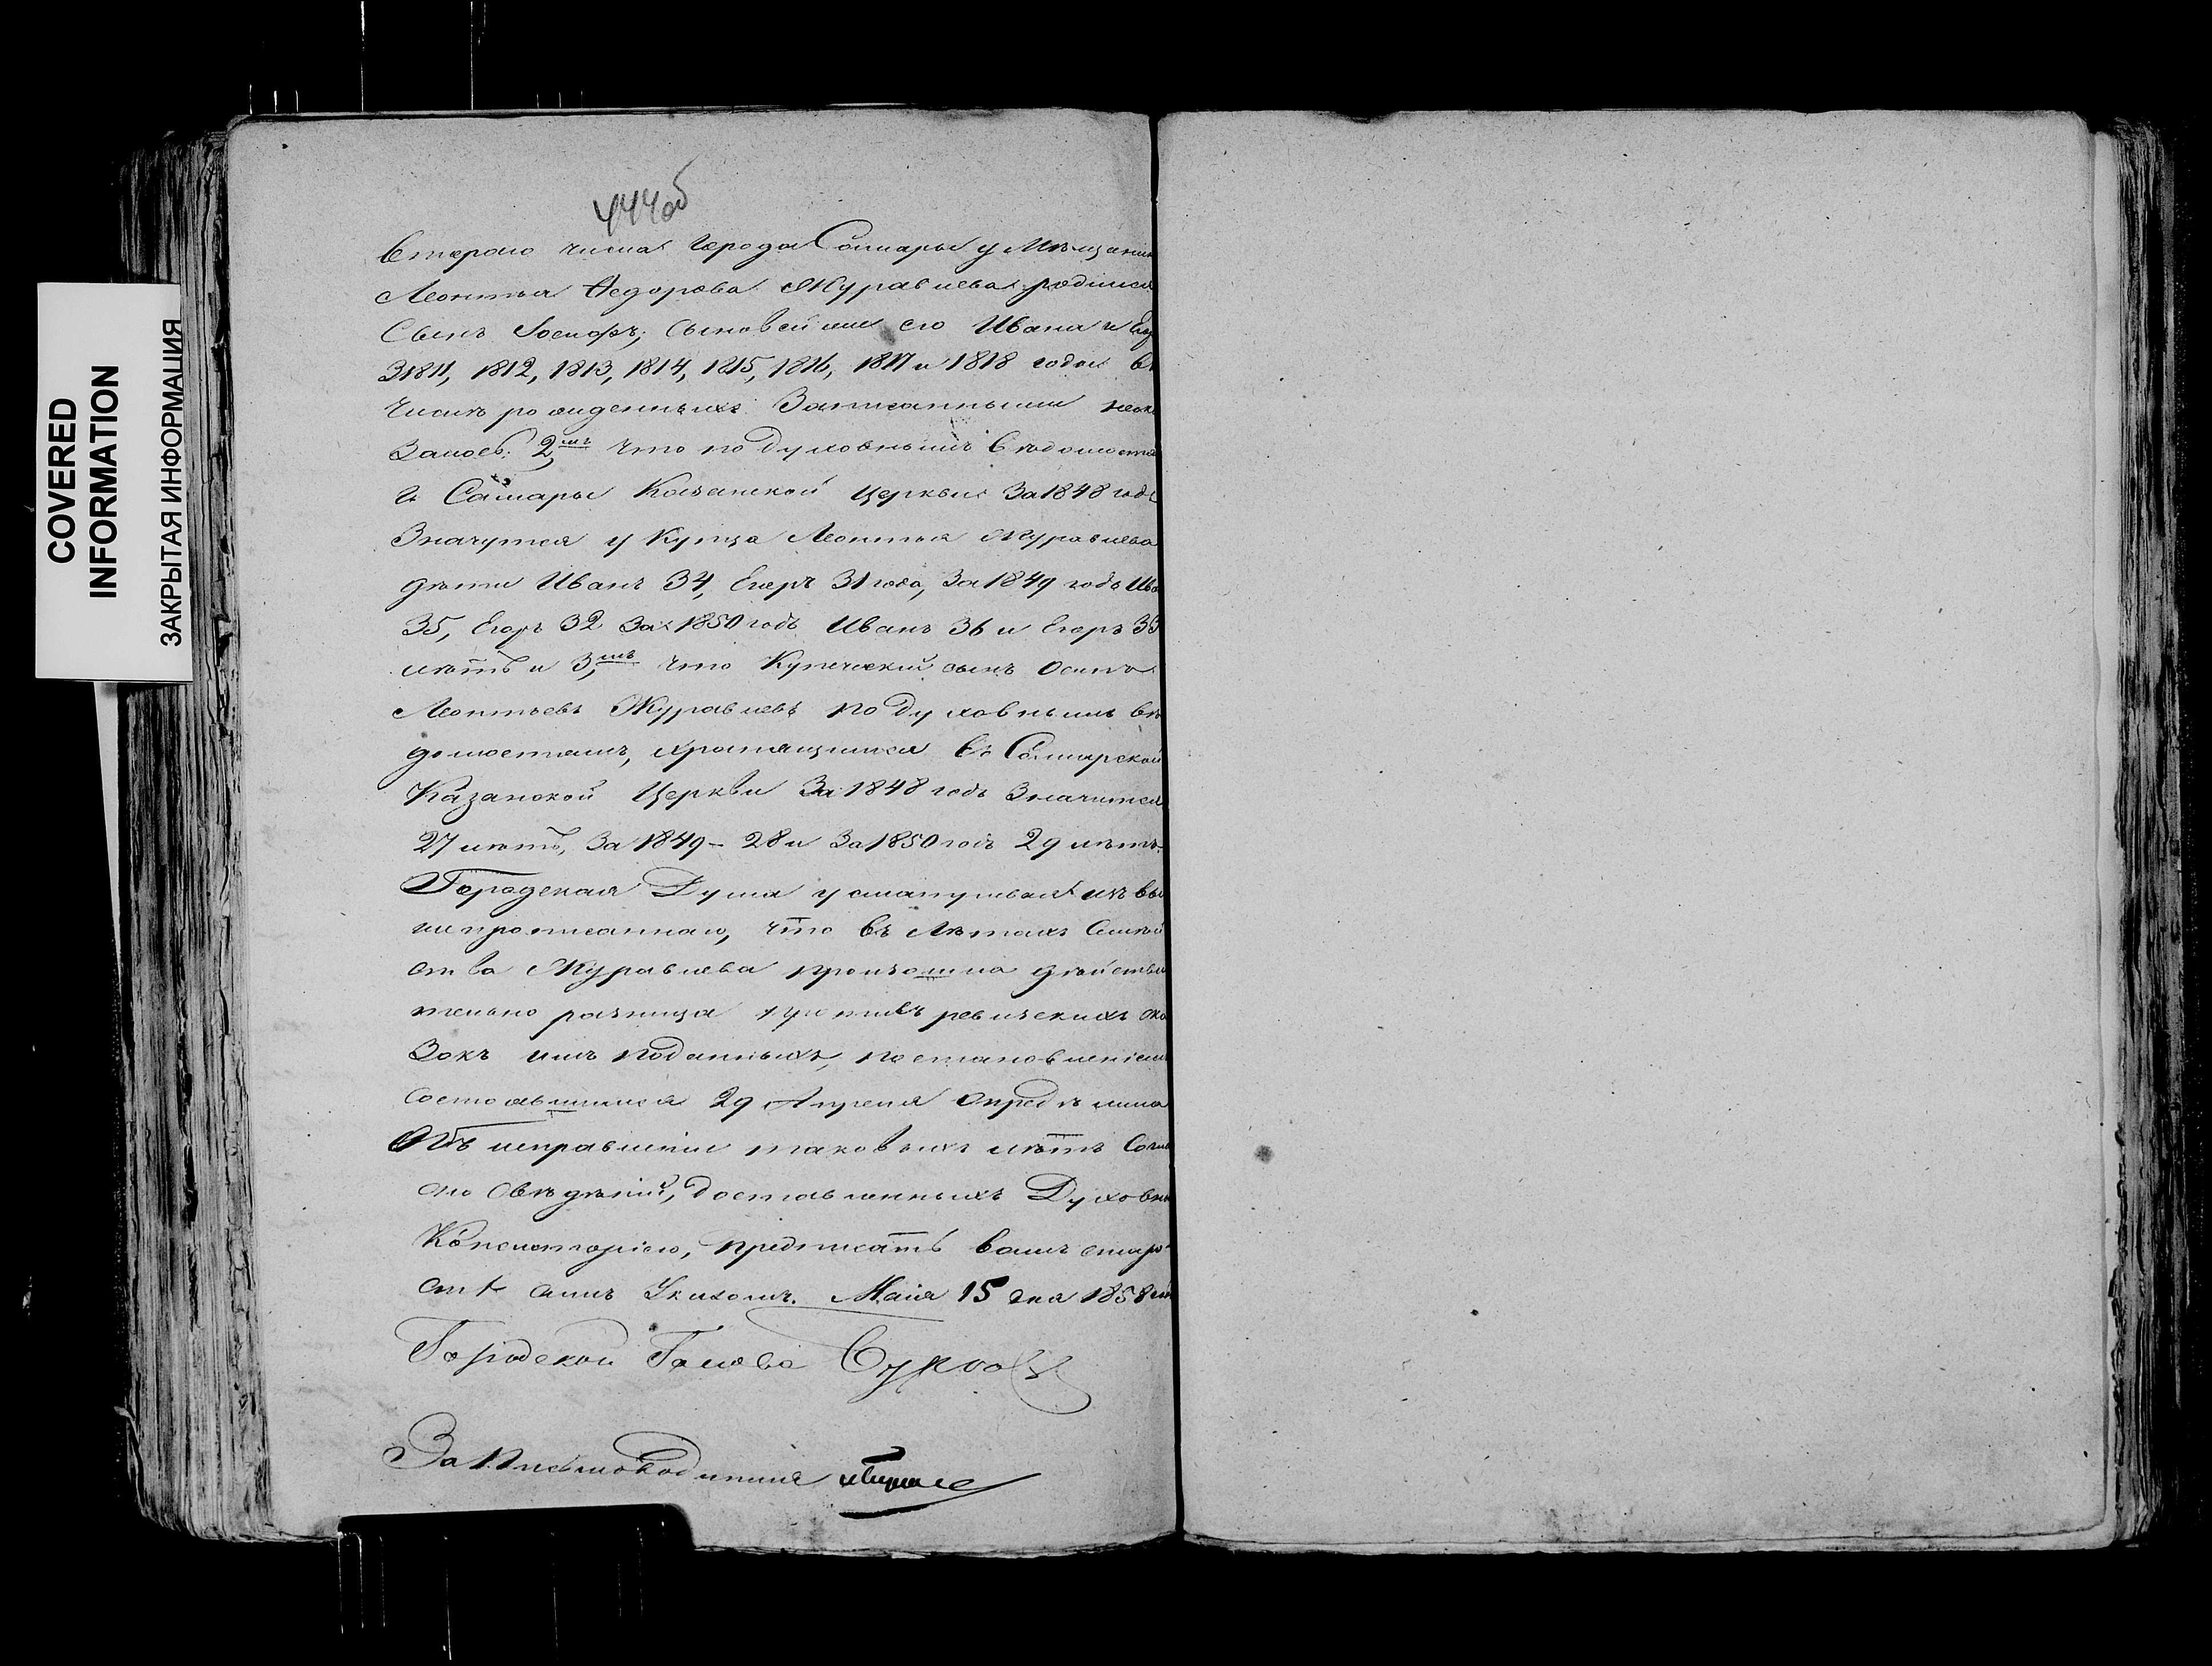 COVERED
INFORMATION
ЗАКРЫТАЯ ИНФОРМАЦИЯ
444об
втораго числа города Самары у Мѣщанин
Леонтья Федорова Журавлева родился
Сынъ Іосифъ; сыновей же его Ивана и Его
1811, 1812, 1813, 1814, 1815, 1816, 1817 и 1818 годах въ
числѣ рожденныхъ Записанными неока
залось. 2мъ что по духовнымъ вѣдомостя
г. Самары Казанской церкви За 1848 годъ
Значутся у Купца Леонтья Журавлева
дѣти Иванъ 34, Егоръ 31 года, За 1849 годъ Ива
35, Егоръ 32 За 1850 годъ Иванъ 36 и Егоръ 33
лѣтъ и 3мъ что Купеческий сынъ Осипъ
Леонтьевъ Журавлевъ по духовнымъ вѣ
домостямъ, хранящимся въ Самарской
Казанской Церкви За 1848 годъ Значится
27 лѣтъ, За 1849 - 28 и За 1850 годъ 29 лѣтъ.
Городская Дума усматривая изъ вы
шепрописаннаго, что въ лѣтахъ Семей
ства Журавлева произошла дѣйстви
тельно разница противъ ревизскихъ ска
зокъ имъ поданныхъ, постановленіемъ
состоявшимся 29 Апреля опредѣлила
Объ исправленіи таковыхъ лѣтъ Согла
сно свѣдѣній, доставленныхъ Духовно
Консисторіею, предписать вамъ старо
ста симъ Указомъ. Маія 15 дня 1858 го
Городской Голова Сурков
За Письмоводителя